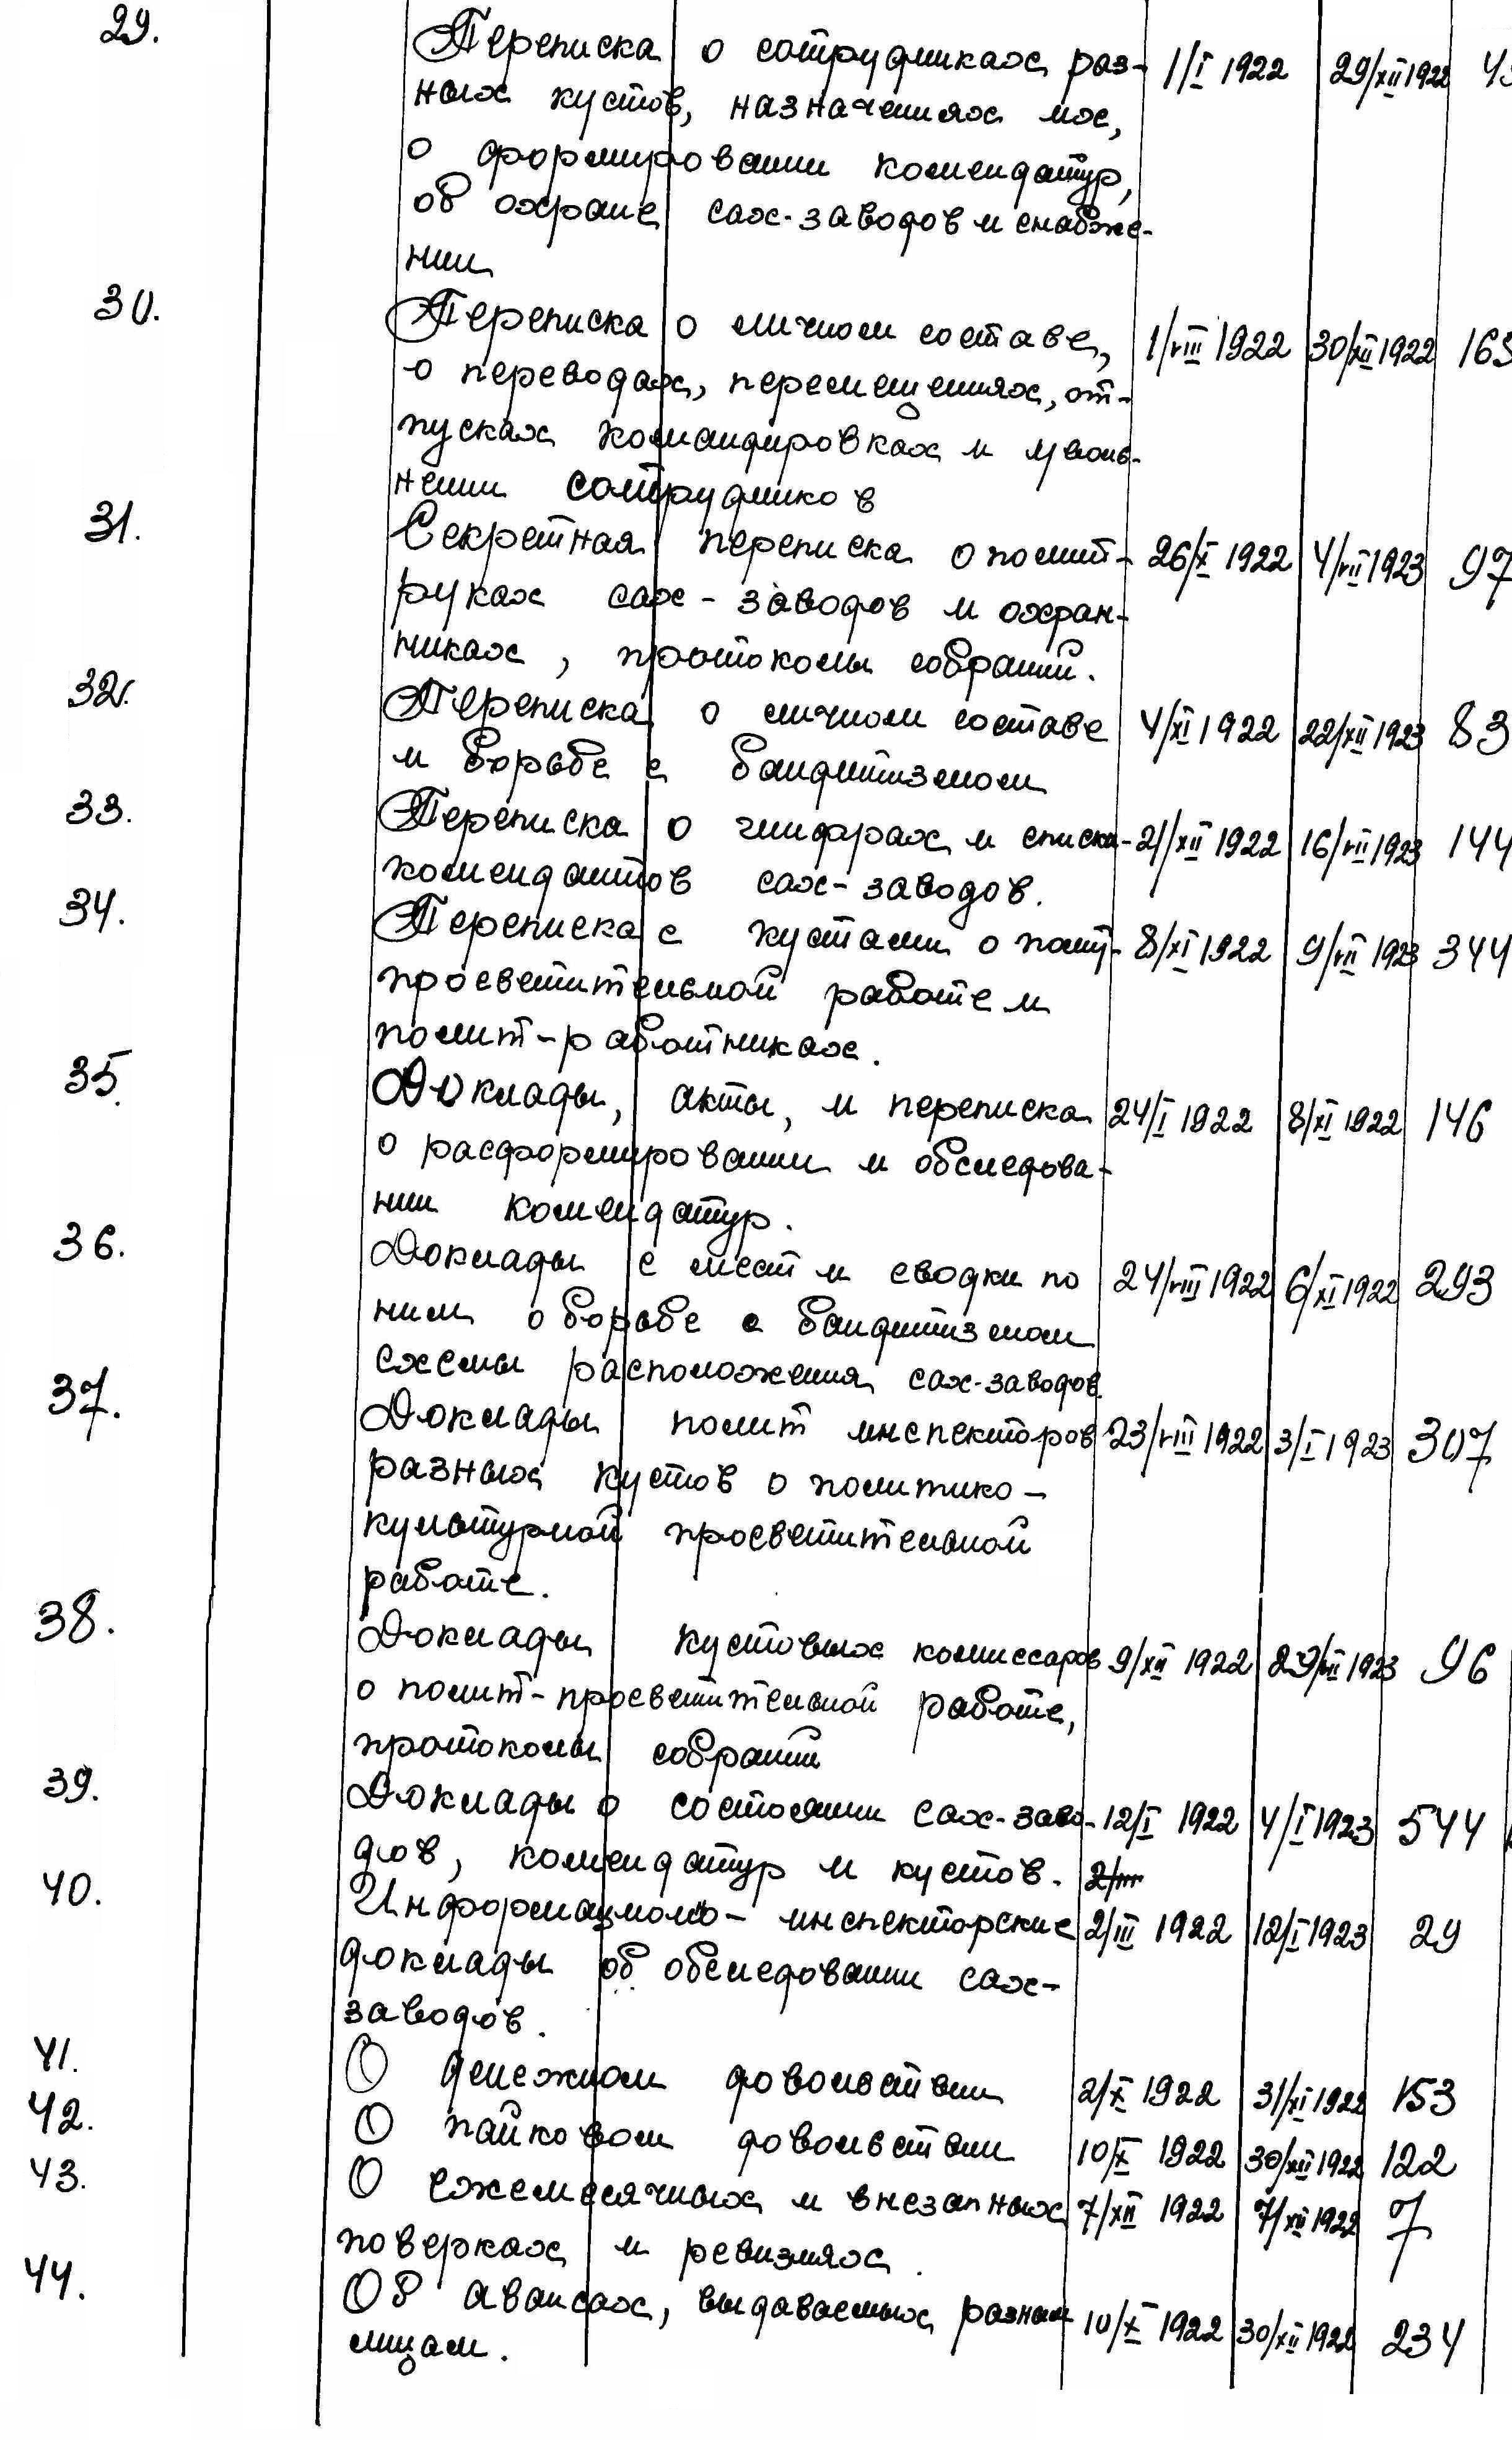 29. Переписка о сотрудниках раз- 1/I 1922 29/XII 1922
ных кустов, назначениях их,
о формировании комендатур,
об охране сах-заводов и снабже-
нии
30. Переписка о личном составе, 1/VIII 1922 30/XII 1922 165
о переводах, перемещениях, от-
пусках командировках и уволь-
нении сотрудников
31. Секретная переписка о полит- 26/X 1922 4/VII 1923 97
руках сах-заводов и охран-
никах, протоколы собраний.
32. Переписка о личном составе 4/XI 1922 22/XII 1923 83
и борьбе с бандитизмом
33. Переписка о шифрах и списка- 21/XII 1922 16/VII 1923 144
комендантов сах-заводов.
34. Переписка с кустами о полит- 8/XI 1922 9/VII 1923 344
просветительной работе и
полит-работниках.
35. Доклады, акты, и переписка 24/I 1922 8/XI 1922 146
о расформировании и обследова-
нии комендатур.
36. Доклады с мест и сводки по 24/VIII 1922 6/XI 1922 293
ним о борьбе с бандитизмом
схемы расположения сах-заводов
37. Доклады полит инспекторов 23/VIII 1922 3/I 1923 307
разных кустов о политико-
культурной просветительной
работе.
38. Доклады кустовых комиссаров 9/XII 1922 29/VII 1923 96
о полит-просветительной работе,
протоколы собраний
39. Доклады о состоянии сах-заво- 12/I 1922 4/I 1923 544
дов, комендатур и кустов.
40. Информационно-инспекторские 2/III 1922 12/I 1923 29
доклады об обследовании сах-
заводов.
41. О денежном довольствии 2/X 1922 31/XI 1922 153
42. О пайковом довольствии 10/X 1922 30/XII 1922 122
43. О ежемесячных и внезапных 7/XII 1922 7/XII 1922 7
поверках и ревизиях.
44. Об авансах, выдаваемых разным 10/X 1922 30/XII 1922 234
лицам.